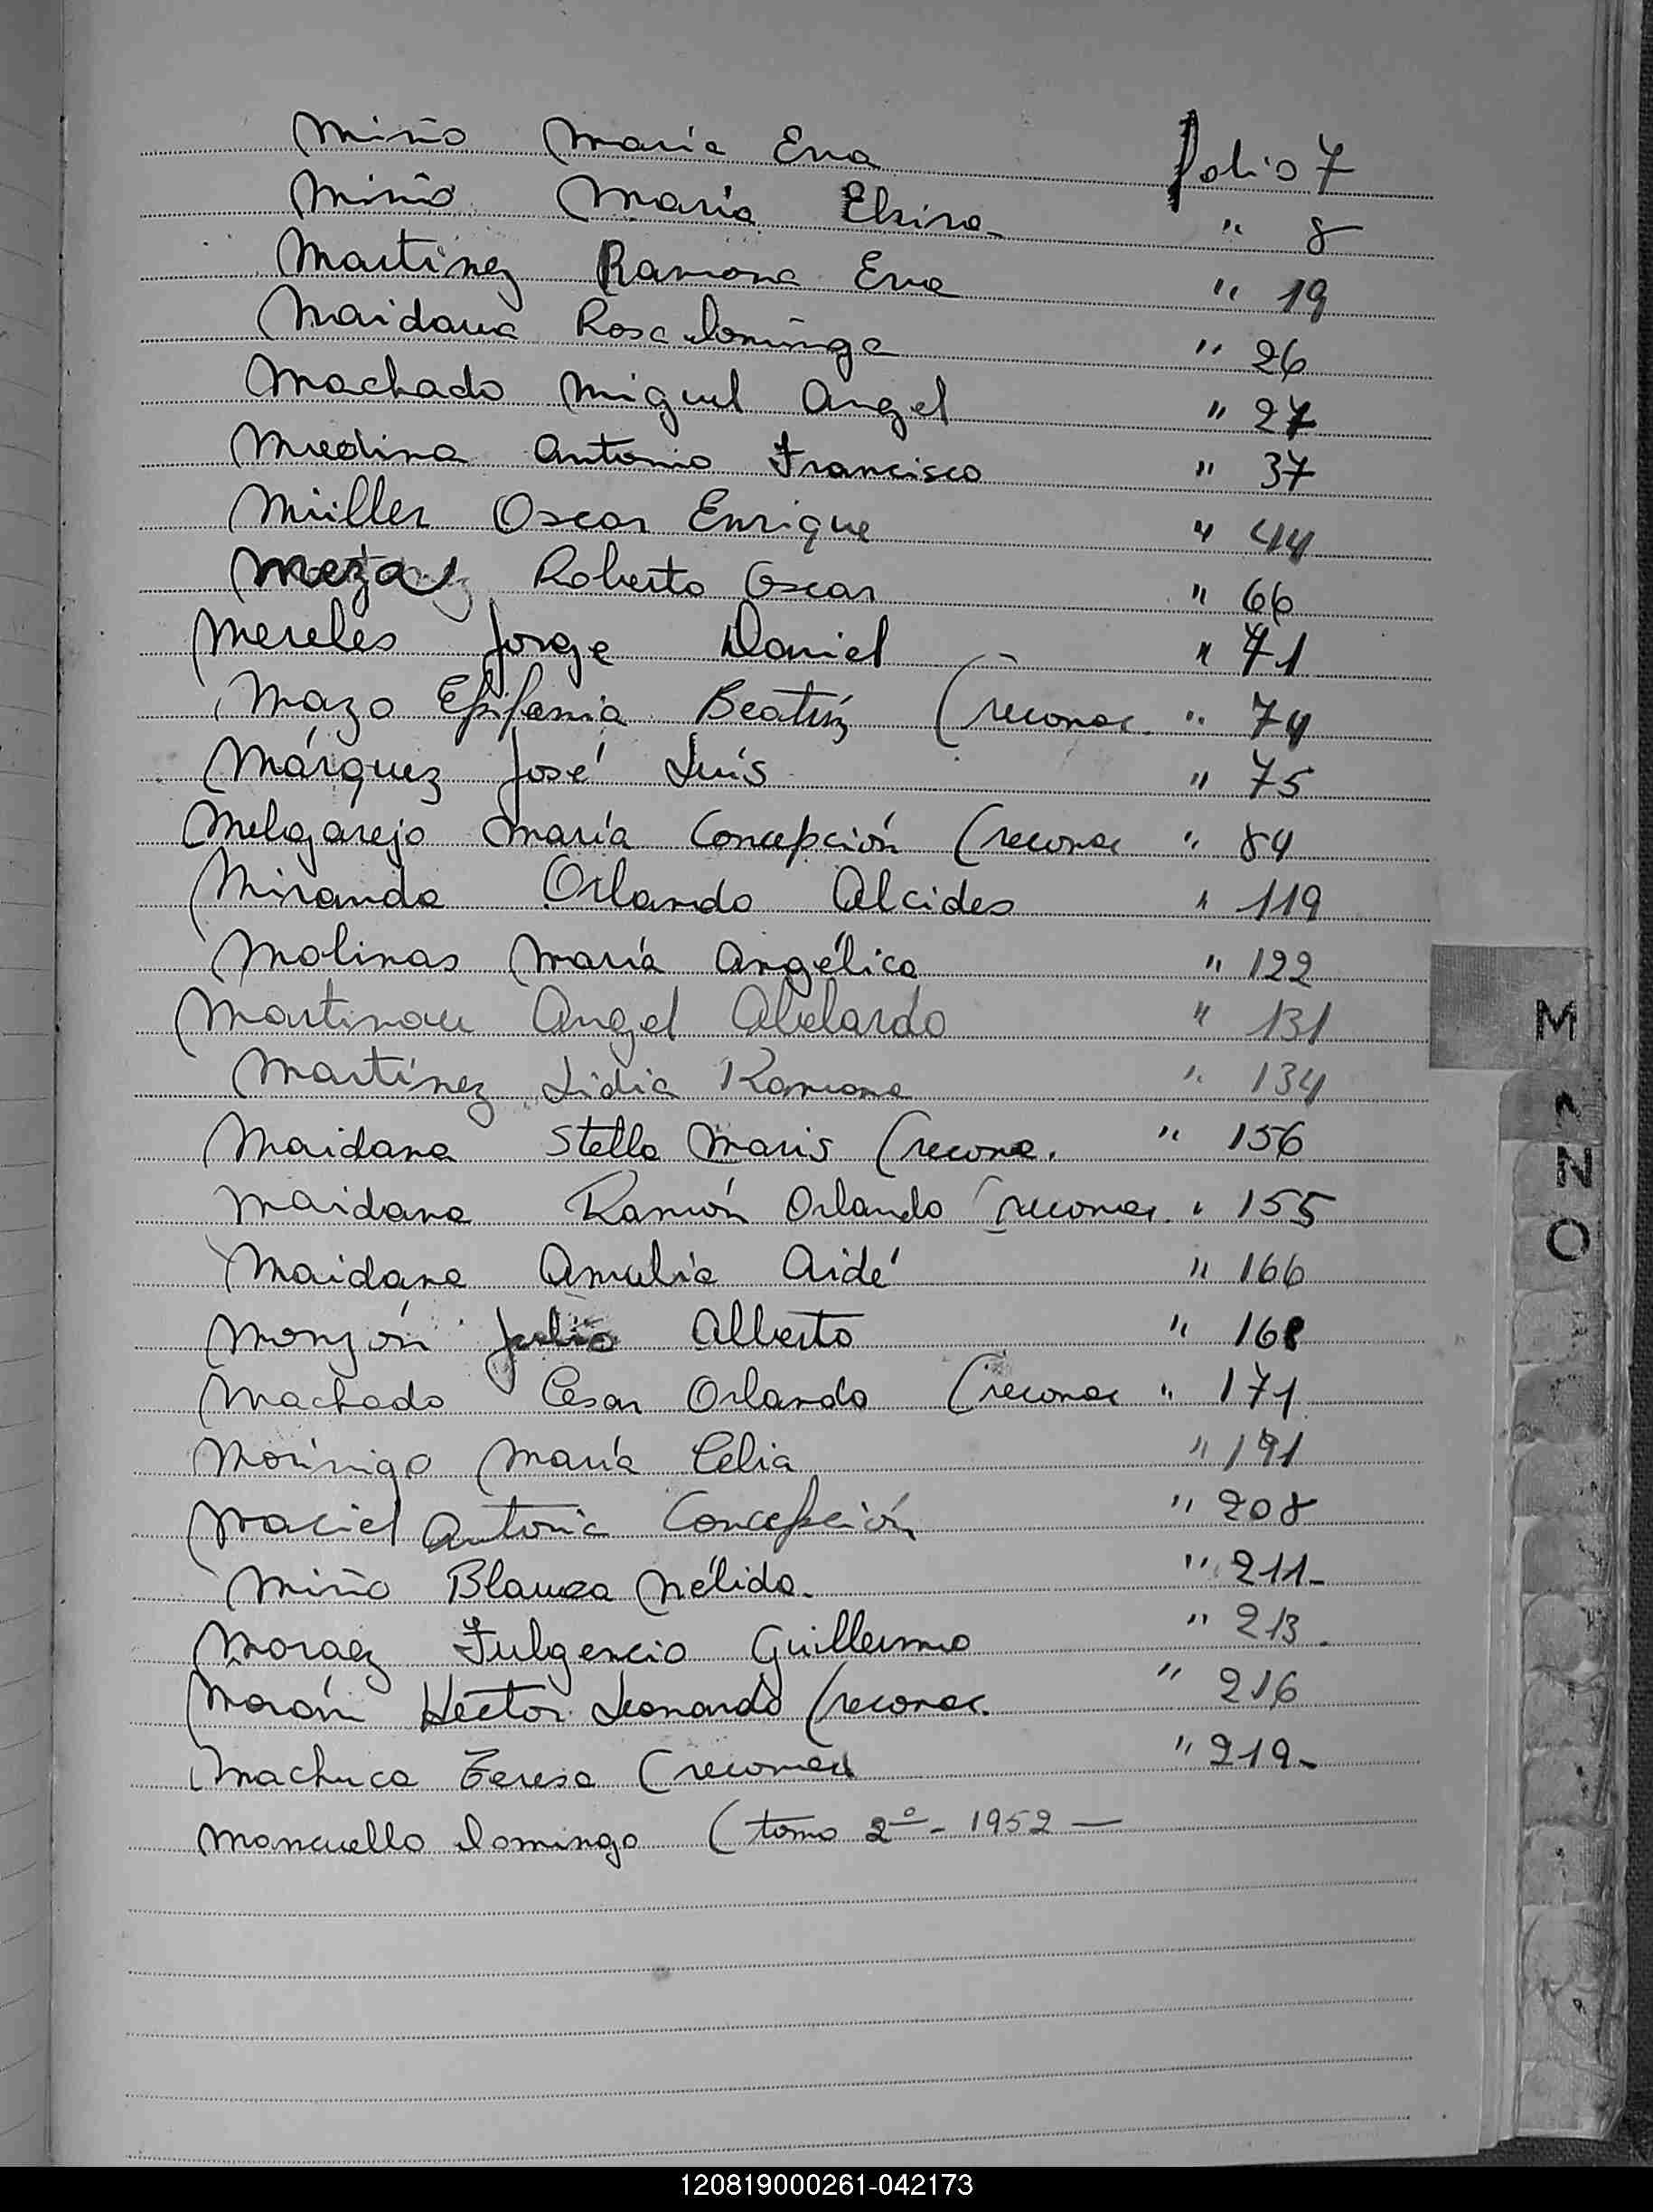 Miño María Eva folio 7
Miño María Elsira " 8
Martínez Ramona Eva " 19
Maidana Rosa Dominga " 26
Machado Miguel Angel " 27
Medina Antonio Francisco " 37
Müller Oscar Enrique " 44
Meza Roberto Oscar " 66
Mereles Jorge Daniel - " 71
Mazo Epifania Beatríz (reconoc. " 74
Márquez José Luís " 75
Melgarejo María Concepción (reconoc " 84
Miranda Orlando Alcides " 119
Molinas María Angélica " 122
Angel Abelardo " 131
Martínez Lidia Ramona " 134
Maidana Stella Maris (recono. " 156
Maidana Ramón Orlando (reconoc. " 155
Maidana Amalia Aidé " 166
Monzón Julio Alberto " 168
Machado Cesar Orlando (reconoc " 171
Morínigo María Celia " 191
Maciel Antonia Concepción " 208
Miño Blanca Nélida. " 211-
Moraez Fulgencio Guillermo " 213.
Morán Héctor Leonardo (reconoc. " 216
Machuca Teresa (reconoc " 219-
Mancuello Domingo (tomo 2º - 1952 —
M
N
O
120819000261-042173